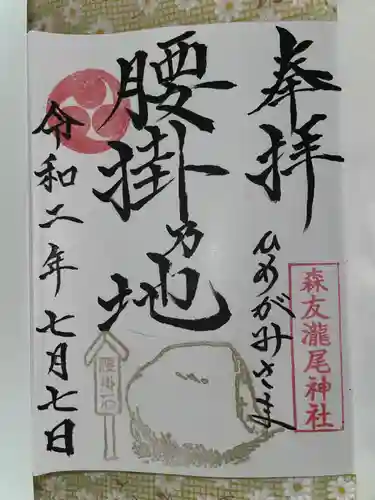 奉拝
ひめがみさま
森友瀧尾神社
腰掛乃地
腰掛石
令和二年七月七日